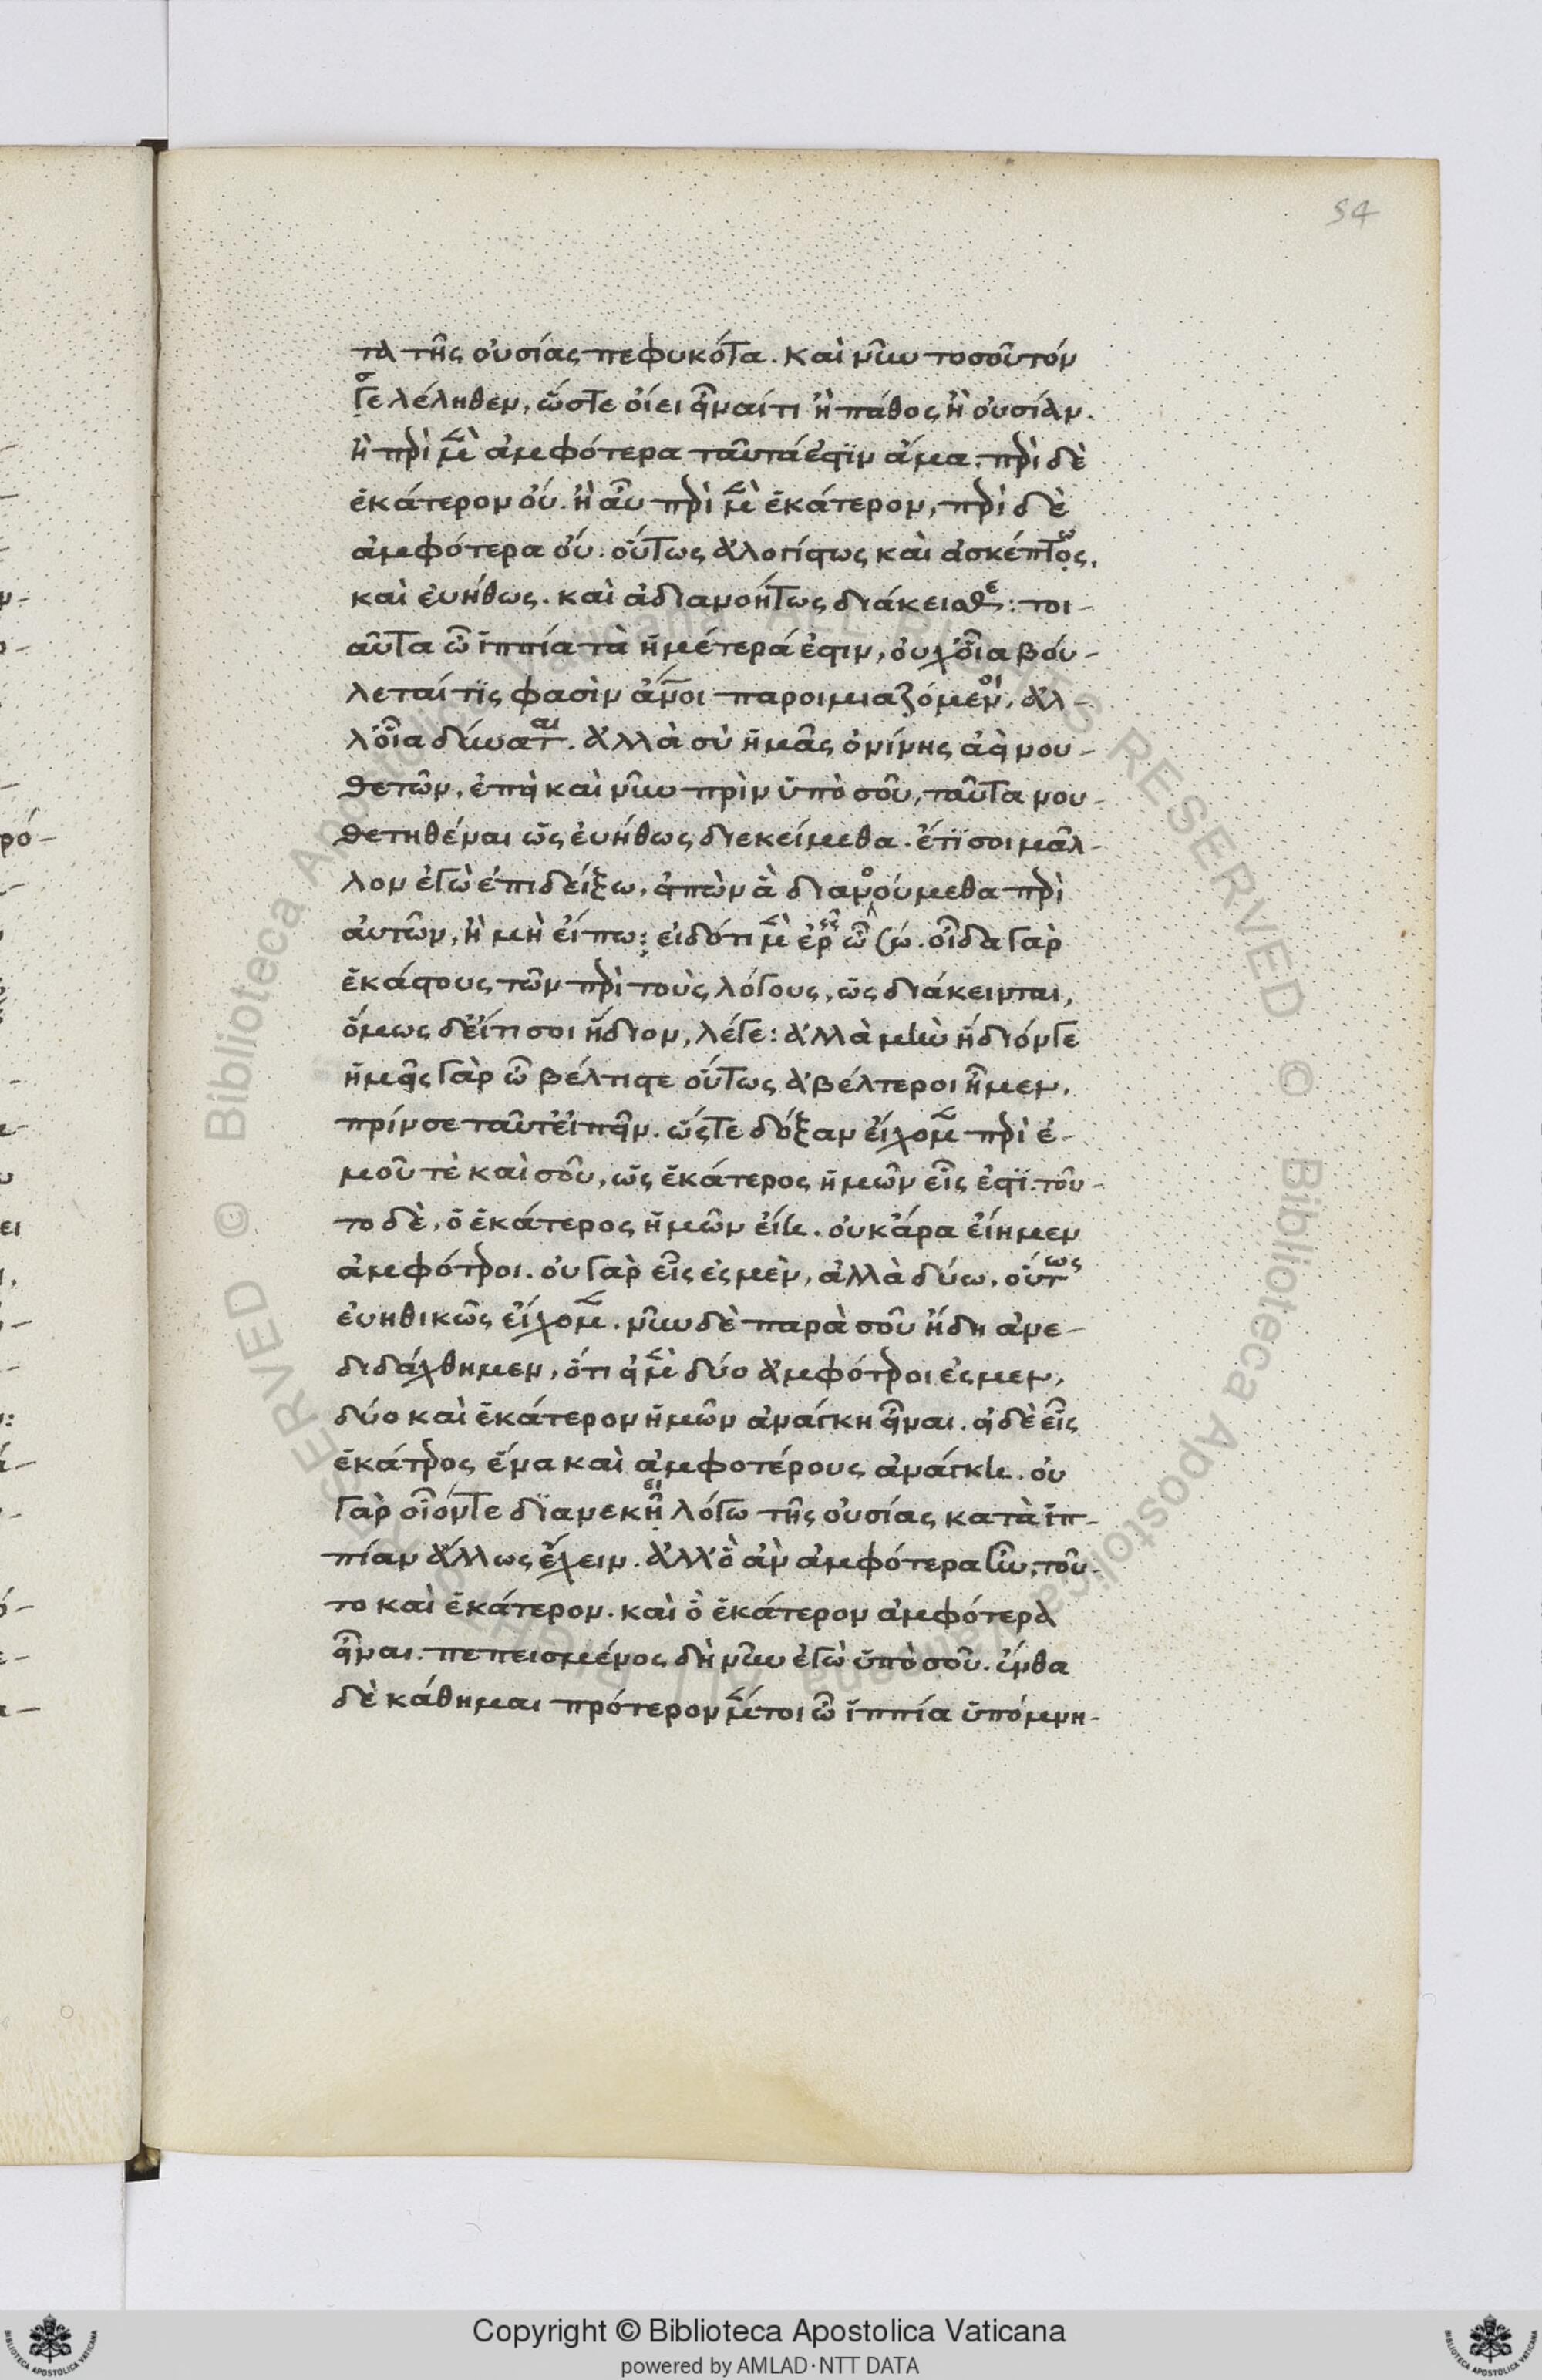 54
τα τῆς οὐσίας πεφυκότα. καὶ νῦν τοσοῦτόν
γε λέληθεν, ὥστε οἴει εἶναί τι ἢ πάθος ἢ οὐσίαν.
ἢ περὶ μὲν ἀμφότερα ταῦτά ἐστϊν ἅμα, περὶ δὲ
ἑκάτερον οὔ. ἢ αὖ περὶ μὲν ἑκάτερον, περὶ δὲ
ἀμφότερα οὔ. οὕτως ἀλογίστως καὶ ἀσκέπτως,
καὶ εὐήθως. καὶ ἀδιανοήτως διάκεισθε: τοι-
αῦτα ὦ ἱππία τὰ ἡμέτερά ἐστιν, οὐχ οἷα βού-
λεταί τϊς φασὶν ἄνοι παροιμιαζόμενοι, ἀλ-
λ' οἷα δύναται. ἀλλὰ σὺ ἡμᾶς ὀνίνης ἀεὶ νου-
θετῶν, ἐπεὶ καὶ νῦν πρὶν ὑπὸ σοῦ, ταῦτα νου-
θετηθέναι ὡς εὐήθως διεκείμεθα. ἔτϊ σοι μᾶλ-
λον ἐγὼ ἐπιδείξω, εἰπὼν ἃ διανοούμεθα περὶ
αὐτῶν, ἢ μὴ εἴπω; εἰδότι μὲν ἐρεῖς ὦ σώ. οἶδα γὰρ
ἑκάστους τῶν περὶ τοὺς λόγους, ὡς διάκεινται,
ὅμως δ' εἴ τι σοι ἥδιον, λέγε: ἀλλὰ μὴν ἥδιόν γε
ἡμεῖς γὰρ ὦ βέλτιστε οὕτως ἀβέλτεροι ἦμεν,
πρίν σε ταῦτ' εἰπεῖν. ὥςτε δόξαν εἴχομεν περὶ ἐ-
μοῦ τὲ καὶ σοῦ, ὡς ἑκάτερος ἡμῶν εἷς ἐστϊ. τοῦ-
το δὲ, ὃ ἑκάτερος ἡμῶν εἴη. οὐκ ἄρα εἴημεν
ἀμφότεροι. οὐ γὰρ εἷς ἐςμὲν, ἀλλὰ δύω, οὕτως
εὐηθικῶς εἴχομεν. νῦν δὲ παρὰ σοῦ ἤδη ἀνε-
διδάχθημεν, ὅτι εἰ μὲν δύο ἀμφότεροι ἐςμεν,
δύο καὶ ἑκάτερον ἡμῶν ἀνάγκη εἶναι. εἰ δὲ εἷς
ἑκάτερος ἕνα καὶ ἀμφοτέρους ἀνάγκη. οὐ
γὰρ οἷόν τε δϊανεκεῖ λόγω τῆς οὐσίας κατὰ ἱπ-
πίαν ἄλλως ἔχειν. ἀλλ' ὃ ἂν ἀμφότερα ἦν, τοῦ-
το καὶ ἑκάτερον. καὶ ὃ ἑκάτερον ἀμφότερα
εἶναι. πεπεισμένος δὴ νῦν ἐγὼ ὑπὸ σοῦ. ἐνθα
δὲ κάθημαι πρότερον μέντοι ὦ ἱππία ὑπόμνη-
Copyright © Biblioteca Apostolica Vaticana
powered by AMLAD·NTT DATA